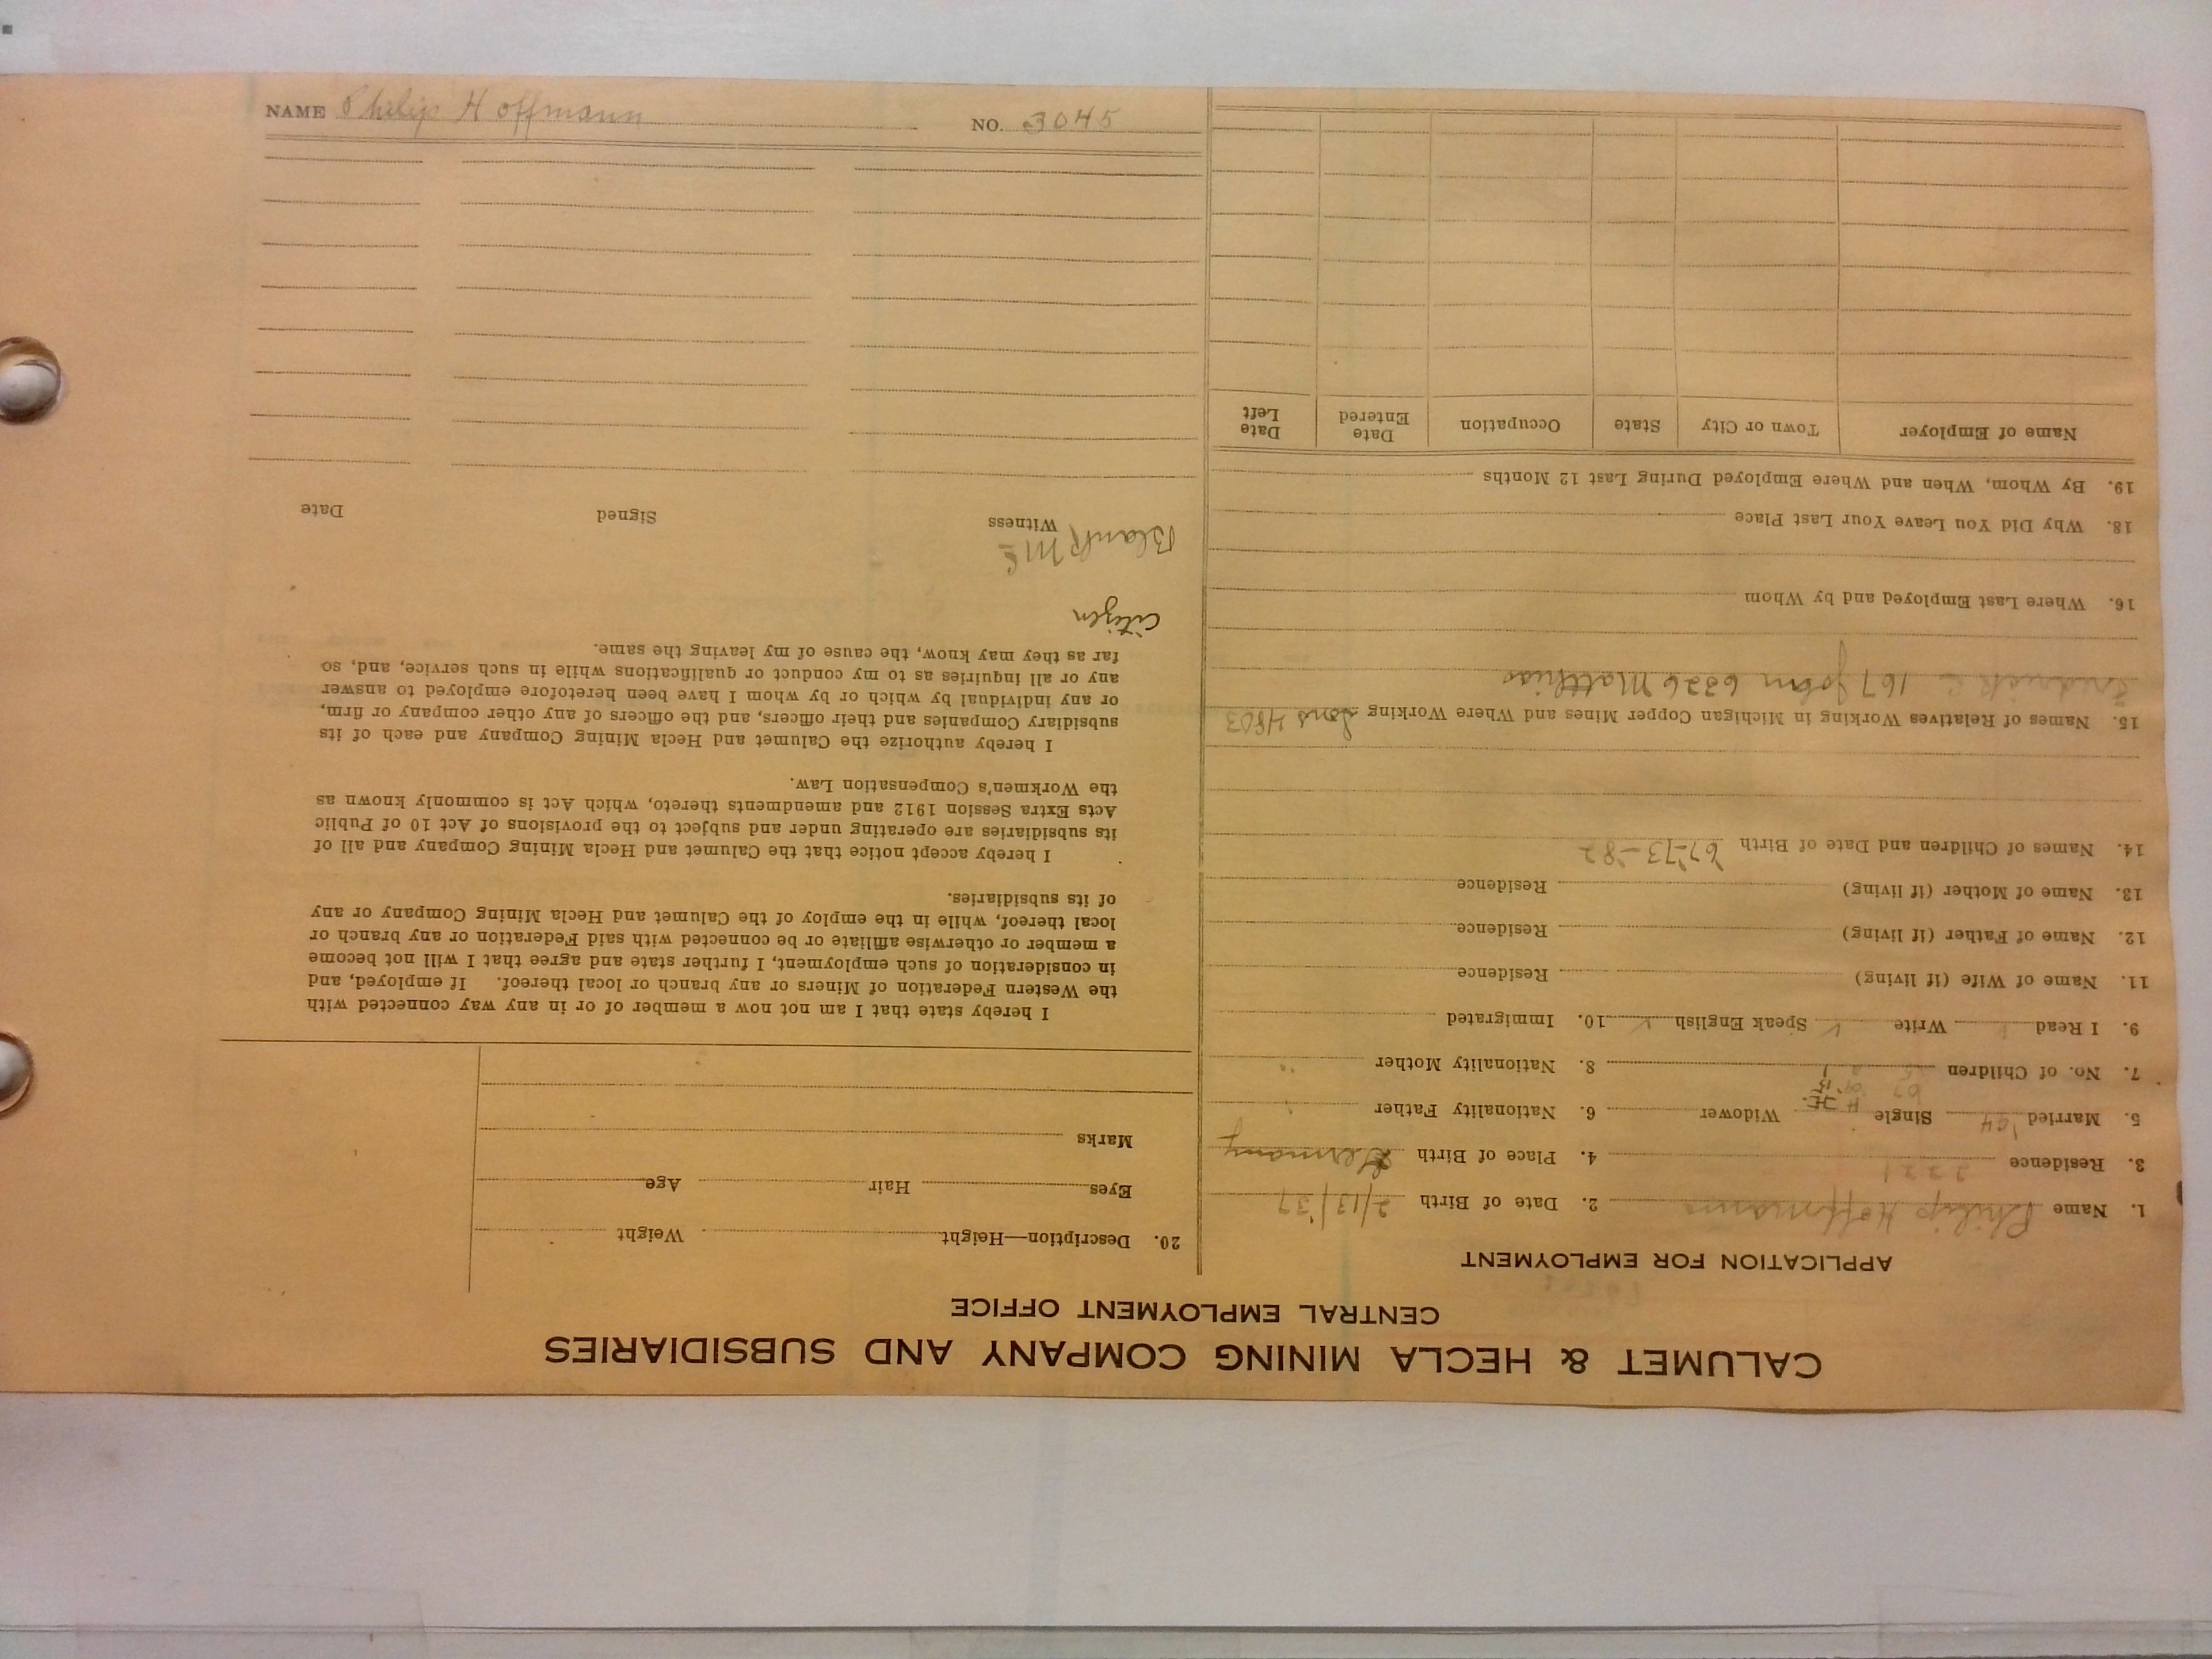 CALUMET & HECLA MINING COMPANY AND SUBSIDIARIES
CENTRAL EMPLOYMENT OFFICE
APPLICATION FOR EMPLOYMENT
1. Name Philip Hoffmann 2. Date of Birth 2/13/'37
3. Residence 4. Place of Birth Germany
5. Married '64 Single Widower 6. Nationality Father "
7. No. of Children 8. Nationality Mother "
9. I Read Write ✓ Speak English ✓ 10. Immigrated
11. Name of Wife (if living) Residence
12. Name of Father (if living) Residence
13. Name of Mother (if living) Residence
14. Names of Children and Date of Birth '67-'73-'82
15. Names of Relatives Working in Michigan Copper Mines and Where Working Sons 4803
167 John 6326 Matthias
16. Where Last Employed and by Whom
18. Why Did You Leave Your Last Place
19. By Whom, When and Where Employed During Last 12 Months
Name of Employer Town or City State Occupation Date Entered Date Left
20. Description—Height Weight
Eyes Hair Age
Marks
I hereby state that I am not now a member of or in any way connected with
the Western Federation of Miners or any branch or local thereof. If employed, and
in consideration of such employment, I further state and agree that I will not become
a member or otherwise affiliate or be connected with said Federation or any branch or
local thereof, while in the employ of the Calumet and Hecla Mining Company or any
of its subsidiaries.
I hereby accept notice that the Calumet and Hecla Mining Company and all of
its subsidiaries are operating under and subject to the provisions of Act 10 of Public
Acts Extra Session 1912 and amendments thereto, which Act is commonly known as
the Workmen's Compensation Law.
I hereby authorize the Calumet and Hecla Mining Company and each of its
subsidiary Companies and their officers, and the officers of any other company or firm,
or any individual by which or by whom I have been heretofore employed to answer
any or all inquiries as to my conduct or qualifications while in such service, and, so
far as they may know, the cause of my leaving the same.
Citizen
Witness Signed Date
NAME Philip Hoffmann NO. 3045